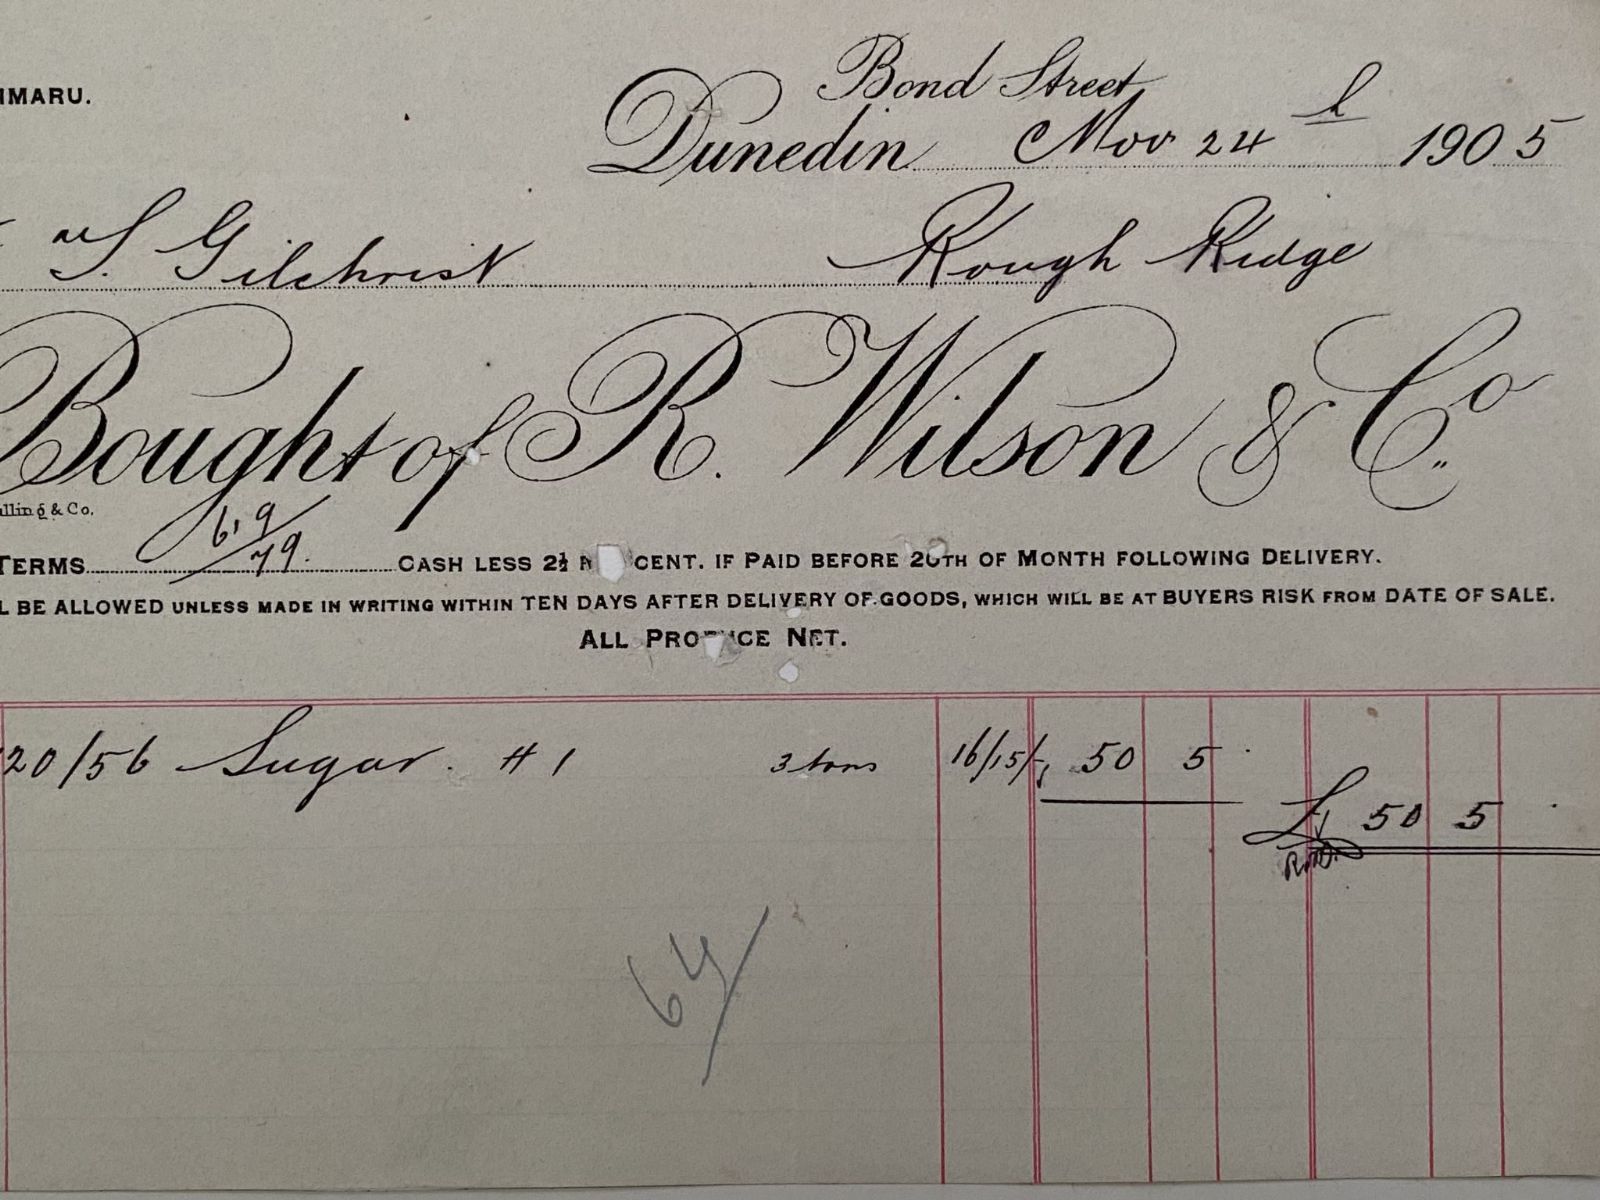 IMARU.
Bond Street
Dunedin Nov 24th 1905
S. Gilchrist Rough Ridge
Bought of R. Wilson & Co.
lling & Co.
TERMS 619/79. CASH LESS 2½ CENT. IF PAID BEFORE 20TH OF MONTH FOLLOWING DELIVERY.
L BE ALLOWED UNLESS MADE IN WRITING WITHIN TEN DAYS AFTER DELIVERY OF GOODS, WHICH WILL BE AT BUYERS RISK FROM DATE OF SALE.
ALL PRODUCE NET.
20/56 Sugar. #1 3 tons 16/15/- 50 5 ·
£ 50 5 ·
64/